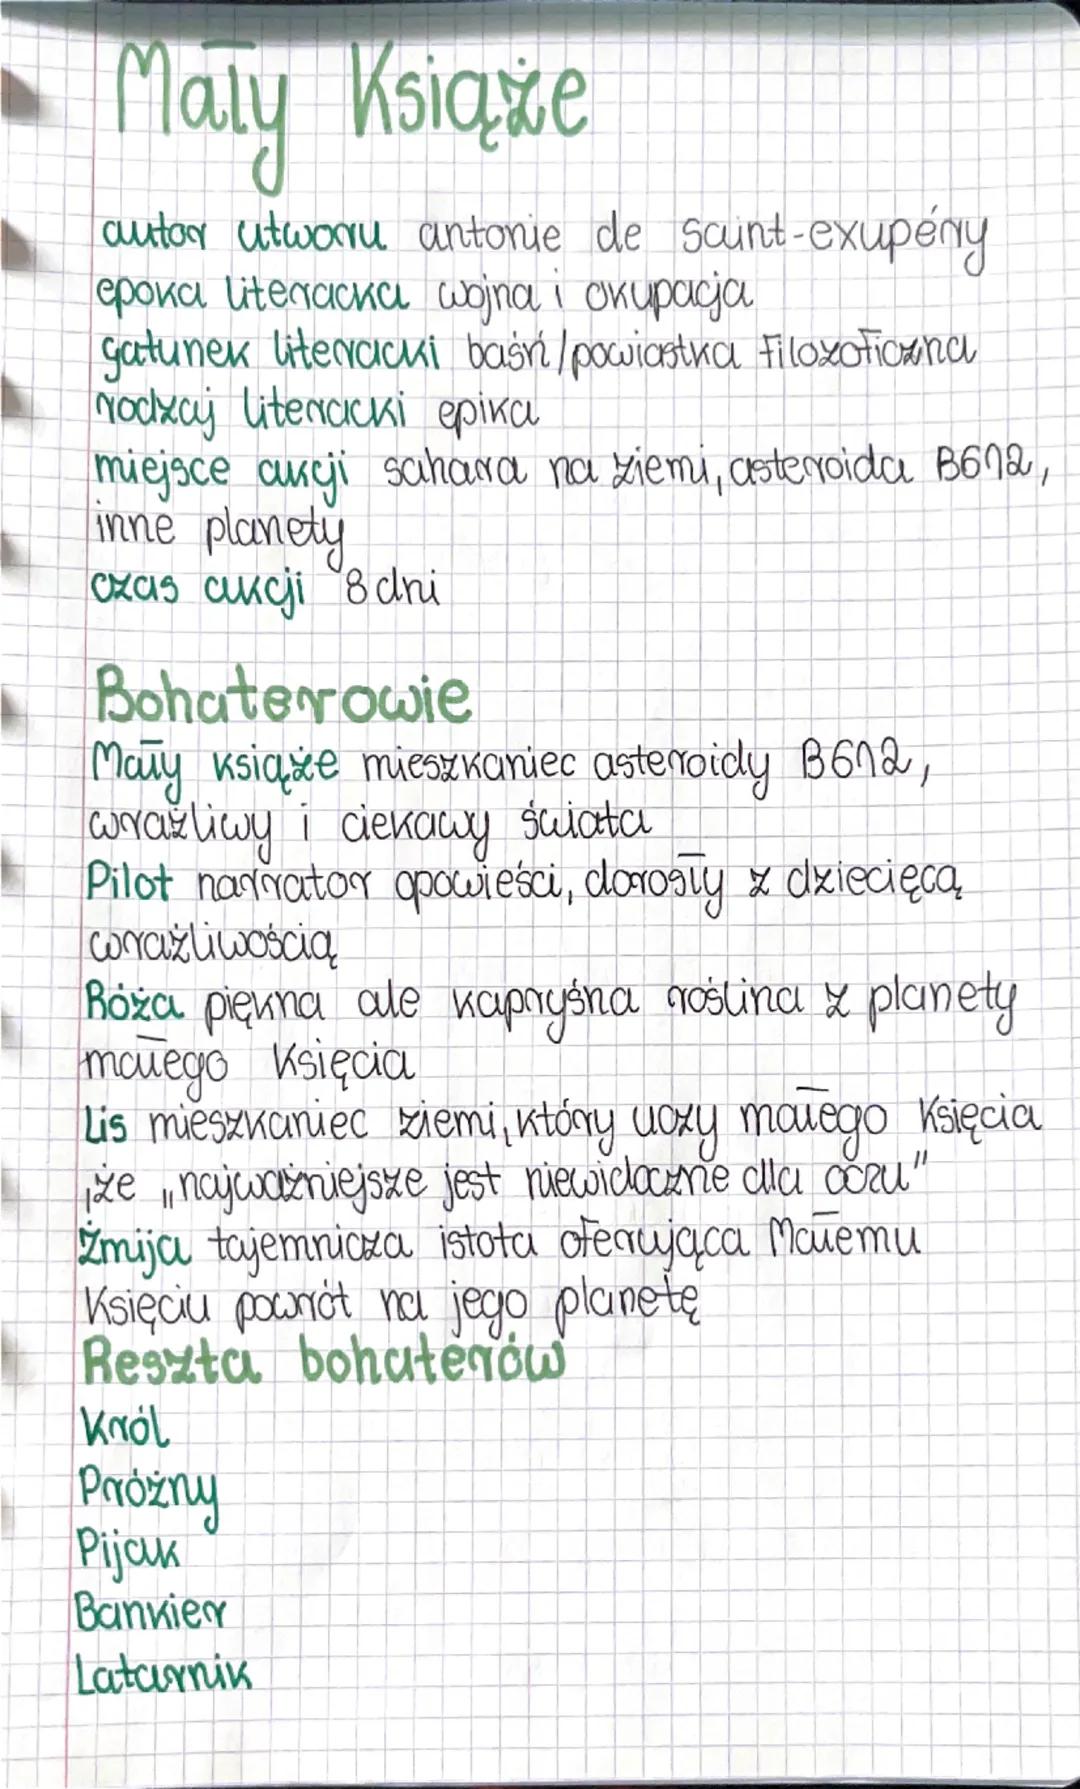 Mały Książe
autor utworu antonie de saint-exupéry
epoka literacka wojna i okupacja
gatunek literacki baśń/powiastka filozoficzna
rodzaj literacki epika
miejsce akcji sahara na ziemi, asteroida B612,
inne planety
czas akcji 8 dni
Bohaterowie
Mały książe mieszkaniec asteroidy B612,
wrażliwy i ciekawy świata
Pilot narrator opowieści, dorosły z dziecięcą
wrażliwością
Róża piękna ale kapryśna roślina z planety
małego Księcia
Lis mieszkaniec ziemi, który uczy małego Księcia
,że „najważniejsze jest niewidoczne dla oczu"
Żmija tajemnicza istota oferująca Małemu
Księciu powrót na jego planetę
Reszta bohaterów
Król
Próżny
Pijak
Bankier
Latarnik